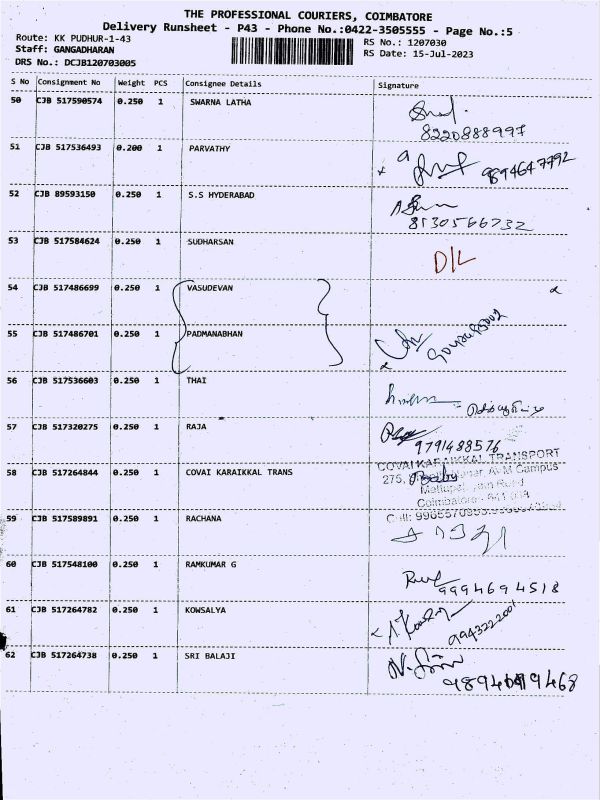 THE PROFESSIONAL COURIERS, COIMBATORE
Delivery Runsheet - P43 - Phone No.:0422-3505555 - Page No.:5
Route: KK PUDHUR-1-43
RS No.: 1207030
Staff: GANGADHARAN
RS Date: 15-Jul-2023
DRS No.: DCJB120703005
S No Consignment No Weight PCS Consignee Details Signature
50 CJB 517590574 0.250 1 SWARNA LATHA
8220888997
51 CJB 517536493 0.200 1 PARVATHY
9894647792
52 CJB 89593150 0.250 1 S.S HYDERABAD
8130566732
53 CJB 517584624 0.250 1 SUDHARSAN
D/L
54 CJB 517486699 0.250 1 VASUDEVAN
55 CJB 517486701 0.250 1 PADMANABHAN
56 CJB 517536603 0.250 1 THAI
57 CJB 517320275 0.250 1 RAJA
9791488576
COVAI KARAIKKAL TRANSPORT
58 CJB 517264844 0.250 1 COVAI KARAIKKAL TRANS
275, Campus
59 CJB 517589891 0.250 1 RACHANA
60 CJB 517548100 0.250 1 RAMKUMAR G
9994694518
61 CJB 517264782 0.250 1 KOWSALYA
62 CJB 517264738 0.250 1 SRI BALAJI